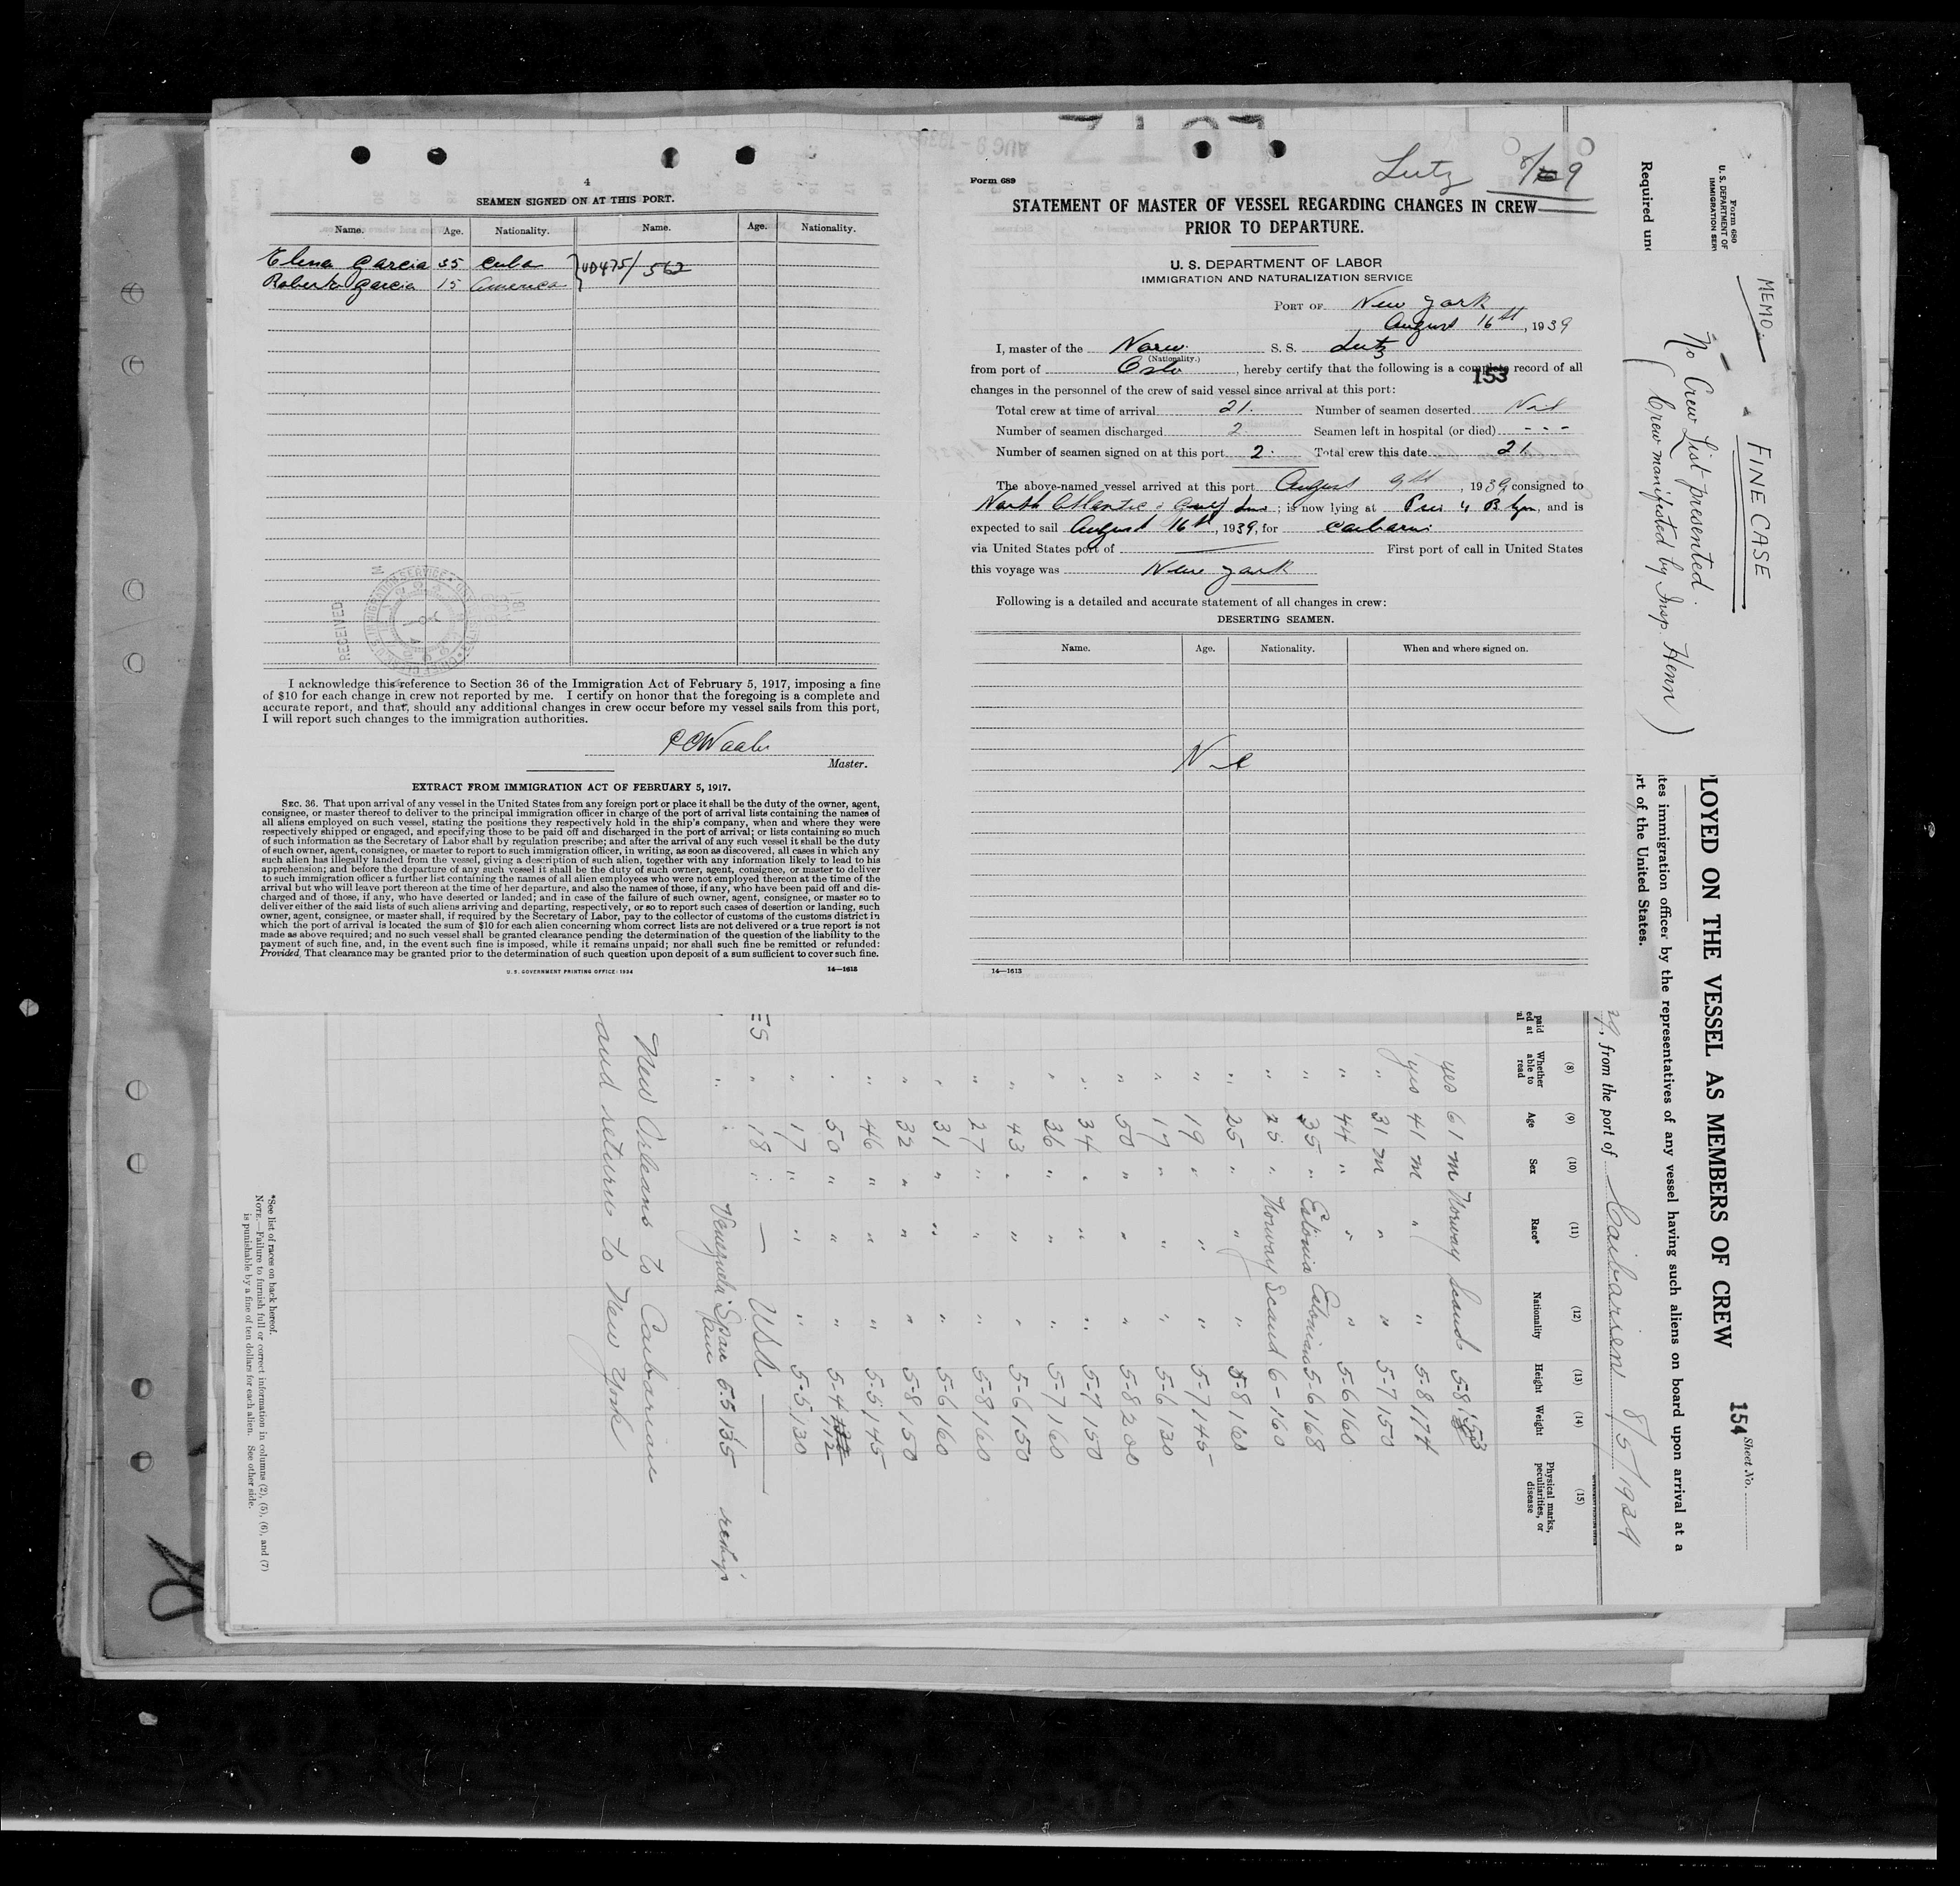 4
SEAMEN SIGNED ON AT THIS PORT.
Name. Age. Nationality. Name. Age. Nationality.
Elena Garcia 35 Cuba
Roberto Garcia 15 America
UD475/562
RECEIVED
I acknowledge this reference to Section 36 of the Immigration Act of February 5, 1917, imposing a fine
of $10 for each change in crew not reported by me. I certify on honor that the foregoing is a complete and
accurate report, and that, should any additional changes in crew occur before my vessel sails from this port,
I will report such changes to the immigration authorities.
Master.
EXTRACT FROM IMMIGRATION ACT OF FEBRUARY 5, 1917.
SEC. 36. That upon arrival of any vessel in the United States from any foreign port or place it shall be the duty of the owner, agent,
consignee, or master thereof to deliver to the principal immigration officer in charge of the port of arrival lists containing the names of
all aliens employed on such vessel, stating the positions they respectively hold in the ship's company, when and where they were
respectively shipped or engaged, and specifying those to be paid off and discharged in the port of arrival; or lists containing so much
of such information as the Secretary of Labor shall by regulation prescribe; and after the arrival of any such vessel it shall be the duty
of such owner, agent, consignee, or master to report to such immigration officer, in writing, as soon as discovered, all cases in which any
such alien has illegally landed from the vessel, giving a description of such alien, together with any information likely to lead to his
apprehension; and before the departure of any such vessel it shall be the duty of such owner, agent, consignee, or master to deliver
to such immigration officer a further list containing the names of all alien employees who were not employed thereon at the time of the
arrival but who will leave port thereon at the time of her departure, and also the names of those, if any, who have been paid off and dis-
charged and of those, if any, who have deserted or landed; and in case of the failure of such owner, agent, consignee, or master so to
deliver either of the said lists of such aliens arriving and departing, respectively, or so to report such cases of desertion or landing, such
owner, agent, consignee, or master shall, if required by the Secretary of Labor, pay to the collector of customs of the customs district in
which the port of arrival is located the sum of $10 for each alien concerning whom correct lists are not delivered or a true report is not
made as above required; and no such vessel shall be granted clearance pending the determination of the question of the liability to the
payment of such fine, and, in the event such fine is imposed, while it remains unpaid; nor shall such fine be remitted or refunded:
Provided, That clearance may be granted prior to the determination of such question upon deposit of a sum sufficient to cover such fine.
U. S. GOVERNMENT PRINTING OFFICE: 1934 14—1613
Lutz
Form 689
STATEMENT OF MASTER OF VESSEL REGARDING CHANGES IN CREW
PRIOR TO DEPARTURE.
U. S. DEPARTMENT OF LABOR
IMMIGRATION AND NATURALIZATION SERVICE
PORT OF New York
August 16th, 1939
I, master of the Norw. S. S. Lutz
(Nationality.)
from port of Oslo, hereby certify that the following is a complete record of all
153
changes in the personnel of the crew of said vessel since arrival at this port:
Total crew at time of arrival 21. Number of seamen deserted Nil
Number of seamen discharged 2 Seamen left in hospital (or died) - - -
Number of seamen signed on at this port 2. Total crew this date 21
The above-named vessel arrived at this port August 9th, 1939, consigned to
North Atlantic & Gulf Line; is now lying at Pier 4 Blyn, and is
expected to sail August 16th, 1939, for Caibarien
via United States port of First port of call in United States
this voyage was New York
Following is a detailed and accurate statement of all changes in crew:
DESERTING SEAMEN.
Name. Age. Nationality. When and where signed on.
Nil
14—1613
Form 689
U. S. DEPARTMENT OF
IMMIGRATION SERV
Required un
MEMO.
FINE CASE
No Crew List presented.
(Crew manifested by Insp. Henn)
154 Sheet No.
LOYED ON THE VESSEL AS MEMBERS OF CREW
tes immigration officer by the representatives of any vessel having such aliens on board upon arrival at a
rt of the United States.
, from the port of Caibarien 8/5/1939
(8) (9) (10) (11) (12) (13) (14) (15)
Whether able to read Age Sex Race* Nationality Height Weight Physical marks, peculiarities, or disease
yes 61 m Norway Scand 5-8 153
yes 41 m " " 5-8 174
" 31 m " " 5-7 150
" 44 " " " 5-6 160
" 35 " Estonia Estonian 5-6 168
" 25 " Norway Scand 6- 160
" 25 " " " 5-8 160
" 19 " " " 5-7 145
" 17 " " " 5-6 130
" 50 " " " 5-8 200
" 34 " " " 5-7 150
" 36 " " " 5-7 160
" 43 " " " 5-6 150
" 27 " " " 5-8 160
" 31 " " " 5-6 160
" 32 " " " 5-8 150
" 46 " " " 5-5 145
" 50 " " " 5-4 172
" 17 " " " 5-5 130
ES " 18 " — USA —
" " Venezuela Span 5.5 135
New Orleans to Caibarien
and return to New York
*See list of races on back hereof.
NOTE.—Failure to furnish full or correct information in columns (2), (5), (6), and (7)
is punishable by a fine of ten dollars for each alien. See other side.